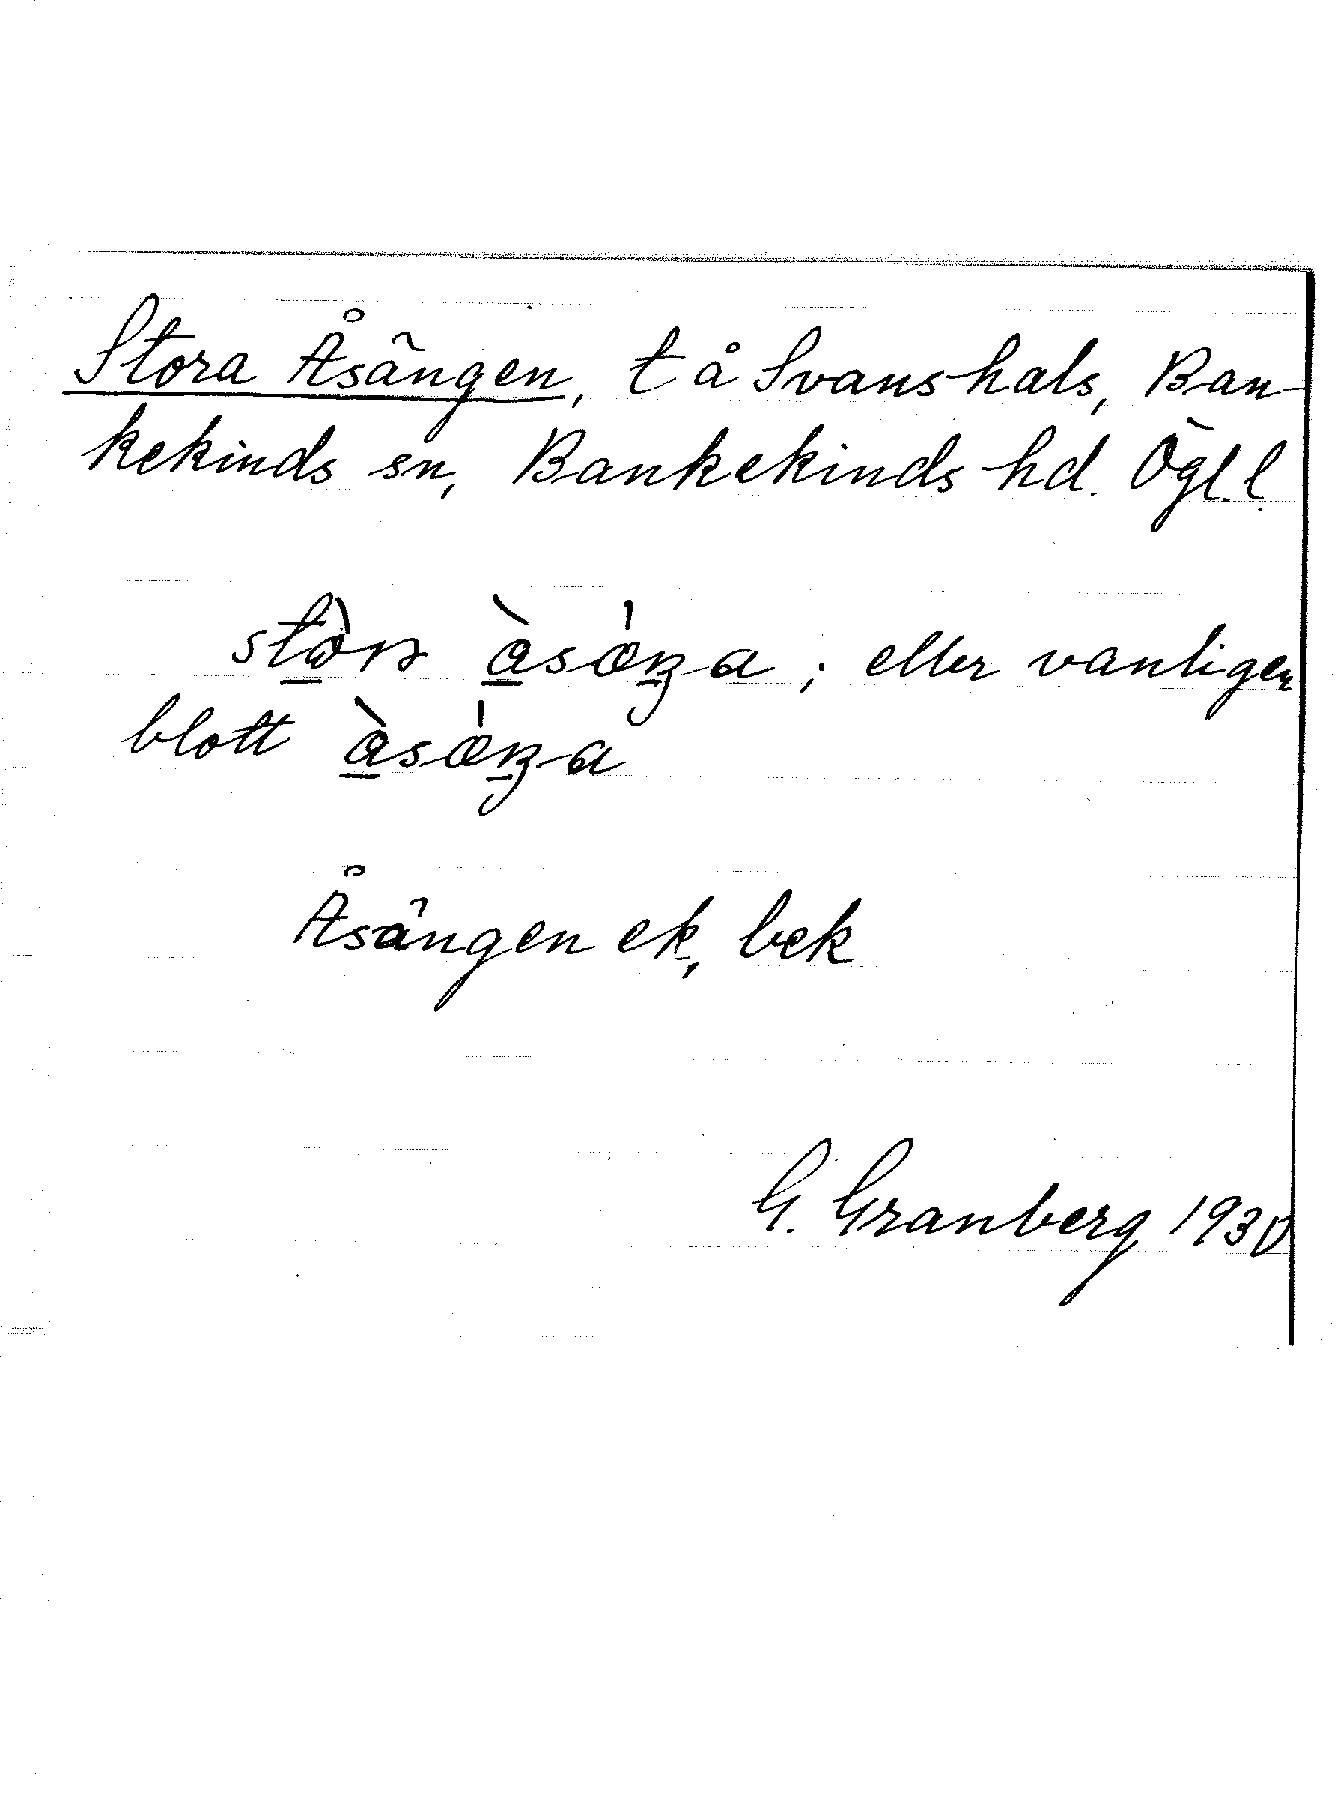 Stora Åsängen, t å Svanshals, Ban-
kekinds sn, Bankekinds hd. Ögl. l.
eller vanligen
blott
Åsängen ek, bek
G. Granberg 1930